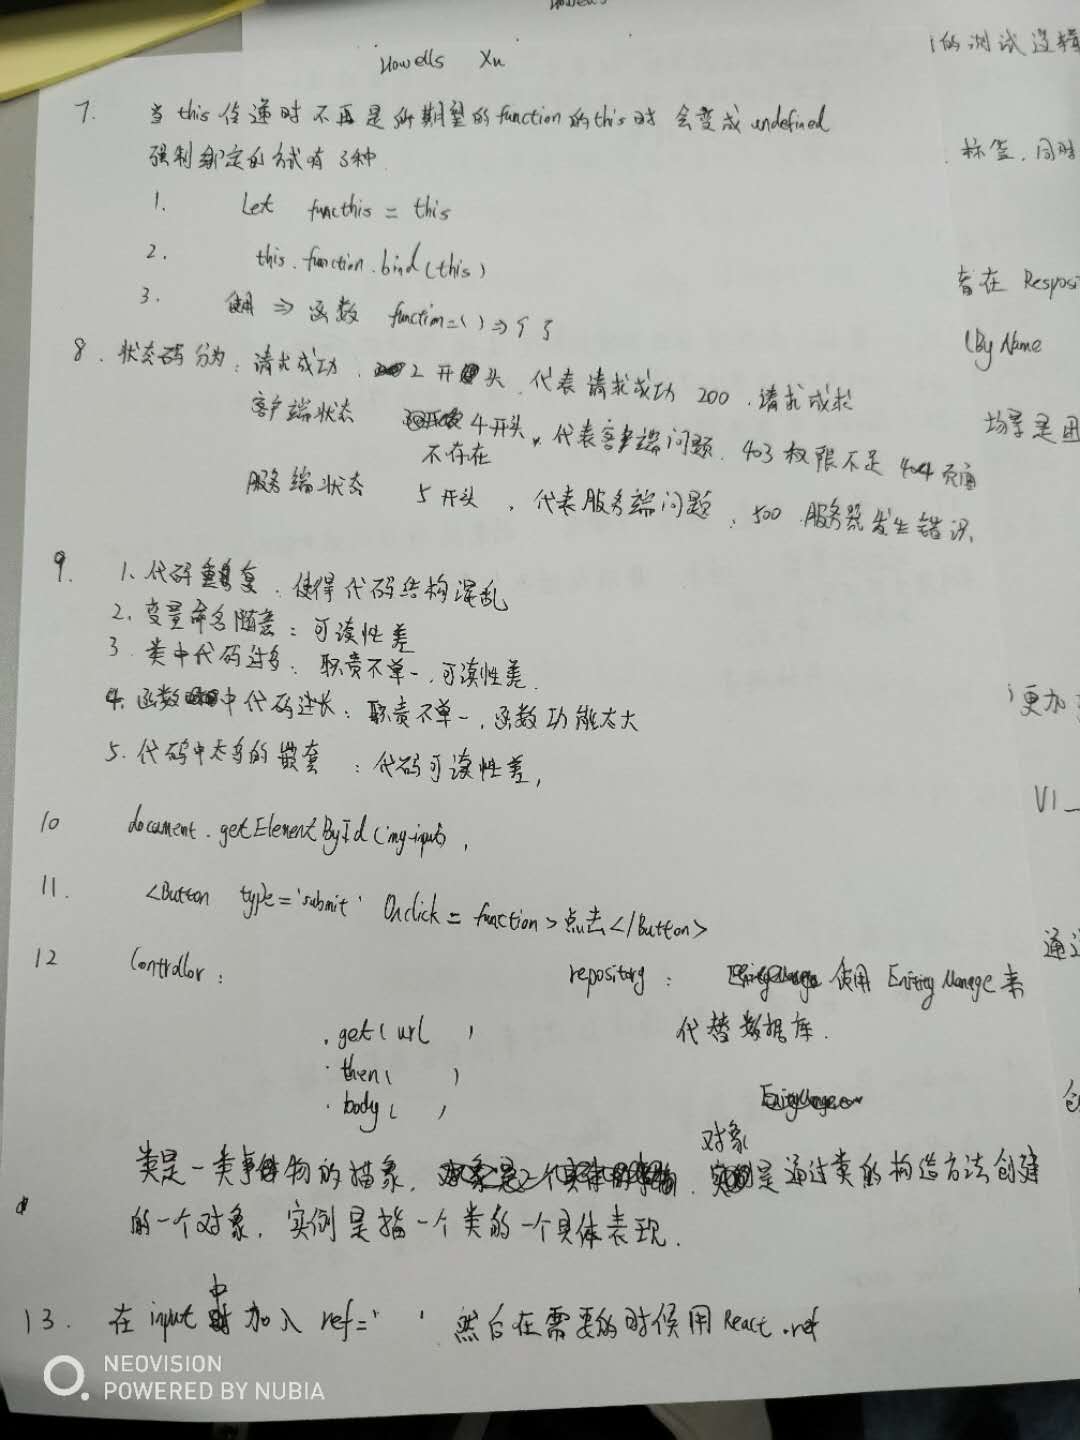 Howells
Howells Xu
的测试逻辑
7. 当this传递时不再是所期望的function的this时 会变成undefined
强制绑定的方式有3种
标签,同时
1. Let functhis = this
2. this.function.bind(this)
3. 使用 => 函数 function=()=>{}
者在 Resposi
8. 状态码分为:请求成功. 2开头. 代表请求成功 200.请求成求
(By Name
客户端状态 4开头, 代表客户端问题. 403权限不足 404页面
不存在
场景是因
服务端状态 5开头, 代表服务端问题, 500.服务器发生错误
9. 1、代码重复:使得代码结构混乱
2、变量命名随意:可读性差
3. 类中代码过多. 职责不单一,可读性差.
4. 函数中代码过长:职责不单一,函数功能太大
更加
5. 代码中太多的嵌套:代码可读性差,
V1_
10 document.getElementById(my-input),
11. <Button type='submit' Onclick = function>点击</Button>
通过
12 Controllor: repository: 使用 EnitityManage来
代替数据库.
.get(url )
.then( )
.body( )
对象
类是一类事物的描象. 是通过类的构造方法创建
的一个对象. 实例是指一个类的一个具体表现.
中
13. 在input加入 ref=' ' 然后在需要的时候用React.ref
NEOVISION
POWERED BY NUBIA